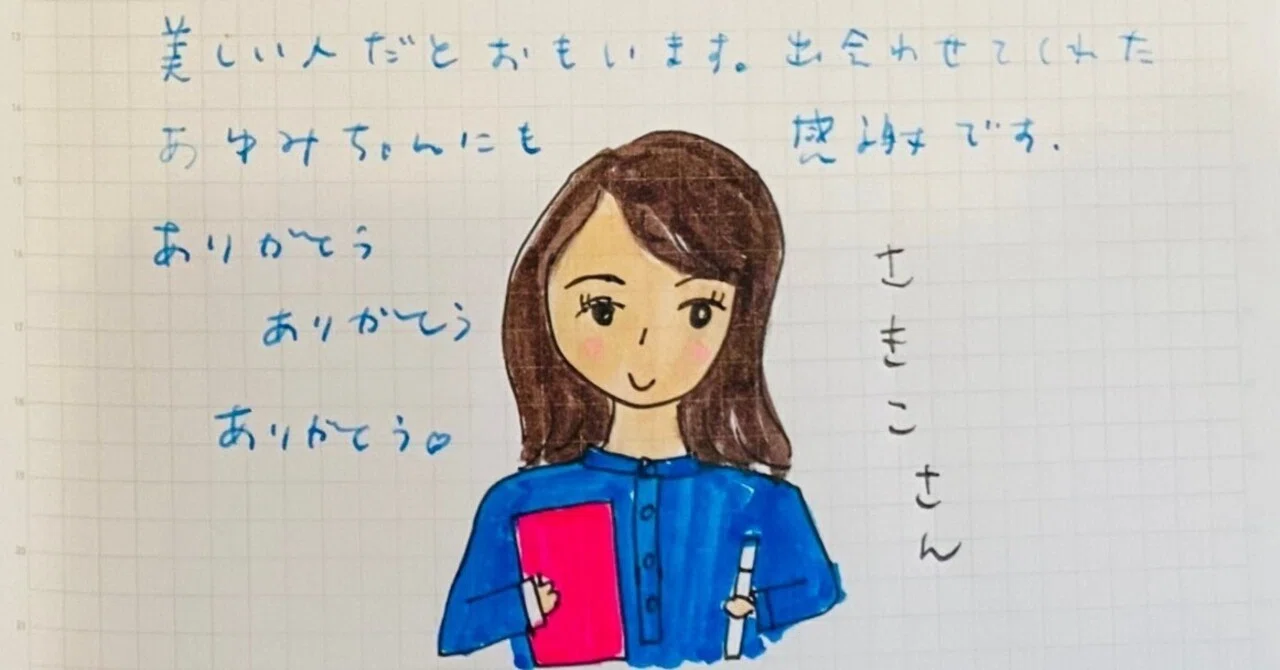 美しい人だとおもいます。出会わせてくれた
あゆみちゃんにも 感謝です.
ありがとう
ありがとう
ありがとう♡
さきこさん